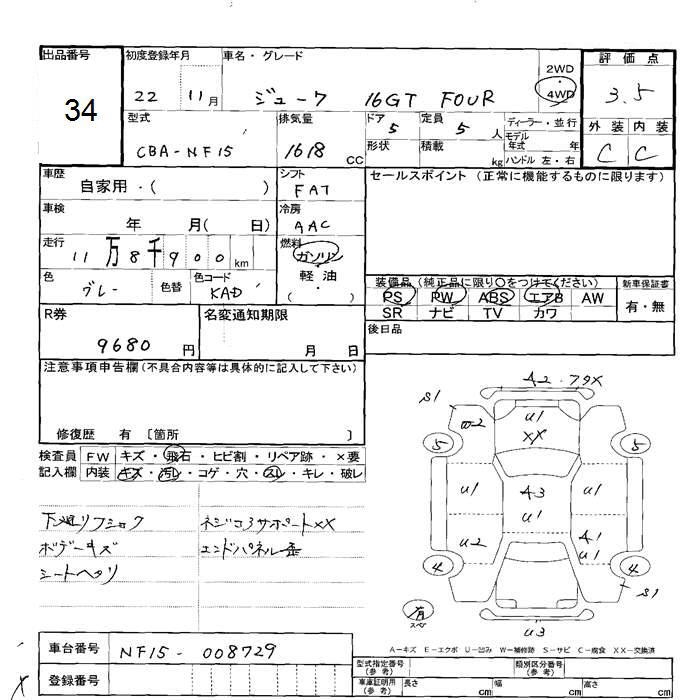 出品番号 初度登録年月 車名・グレード 評価点
34 22 11月 ジューク 16GT FOUR 2WD・4WD 3.5
型式 排気量 ドア 5 定員 5 人 ディーラー・並行 外装 内装
CBA-NF15 1618 CC 形状 積載 kg モデル年式 年 ハンドル 左・右 C C
車歴 シフト セールスポイント (正常に機能するものに限ります)
自家用・( ) FAT
車検 冷房
年 月( 日) AAC
走行 燃料
11万8千900km ガソリン
色 グレー 色替 色コード KAD 軽油 ・( )
装備品 (純正品に限り○をつけてください) 新車保証書
PS PW ABS エアB AW 有・無
SR ナビ TV カワ
R券 名変通知期限 後日品
9680円 月 日
注意事項申告欄 (不具合内容等は具体的に記入して下さい)
修復歴 有 〔箇所 〕
検査員 FW キズ・飛石・ヒビ割・リペア跡・×要
記入欄 内装 キズ・汚レ・コゲ・穴・スレ・キレ・破レ
A2・79X
S1 W2 U1 XX
5 5
U1 A3 U1 U1
U2 A1 U1
4 4
S1
有 スペ
U3
下廻リフショク ネジコアサポートXX
ボデーキズ エンドパネル歪
シートヘタリ
A-キズ E-エクボ U-凹み W-補修跡 S-サビ C-腐食 XX-交換済
車台番号 NF15-008729
型式指定番号 (参考) 類別区分番号 (参考)
登録番号 車庫証明用 (参考) 長さ cm 幅 cm 高さ cm